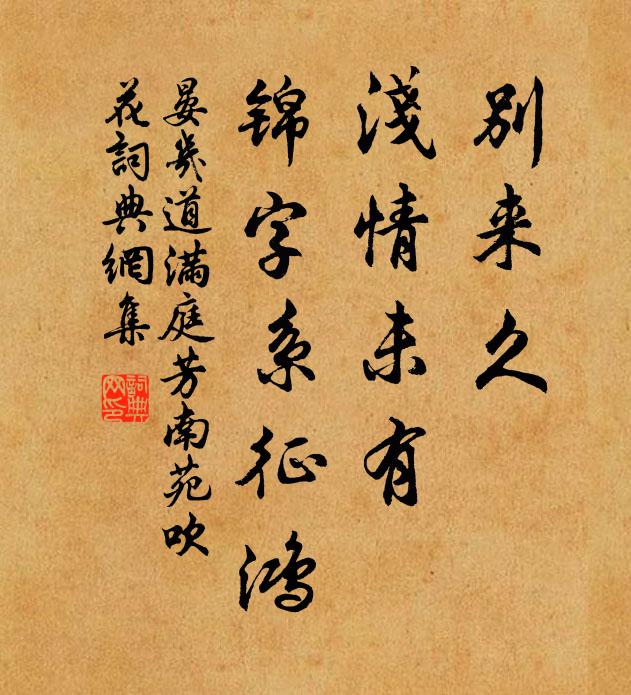 别来久
淺情未有
锦字系征鸿
晏幾道满庭芳南苑吹
花詞典網集
詞典网印